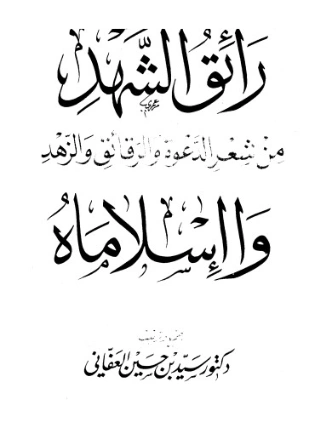 رَائِقُ الشَّهْدِ
مِنْ شِعْرِ الدَّعْوَةِ وَالرَّقَائِقِ وَالزُّهْدِ
وَا إِسْلَامَاهُ
دكتور سيّد بن حسين العفّاني